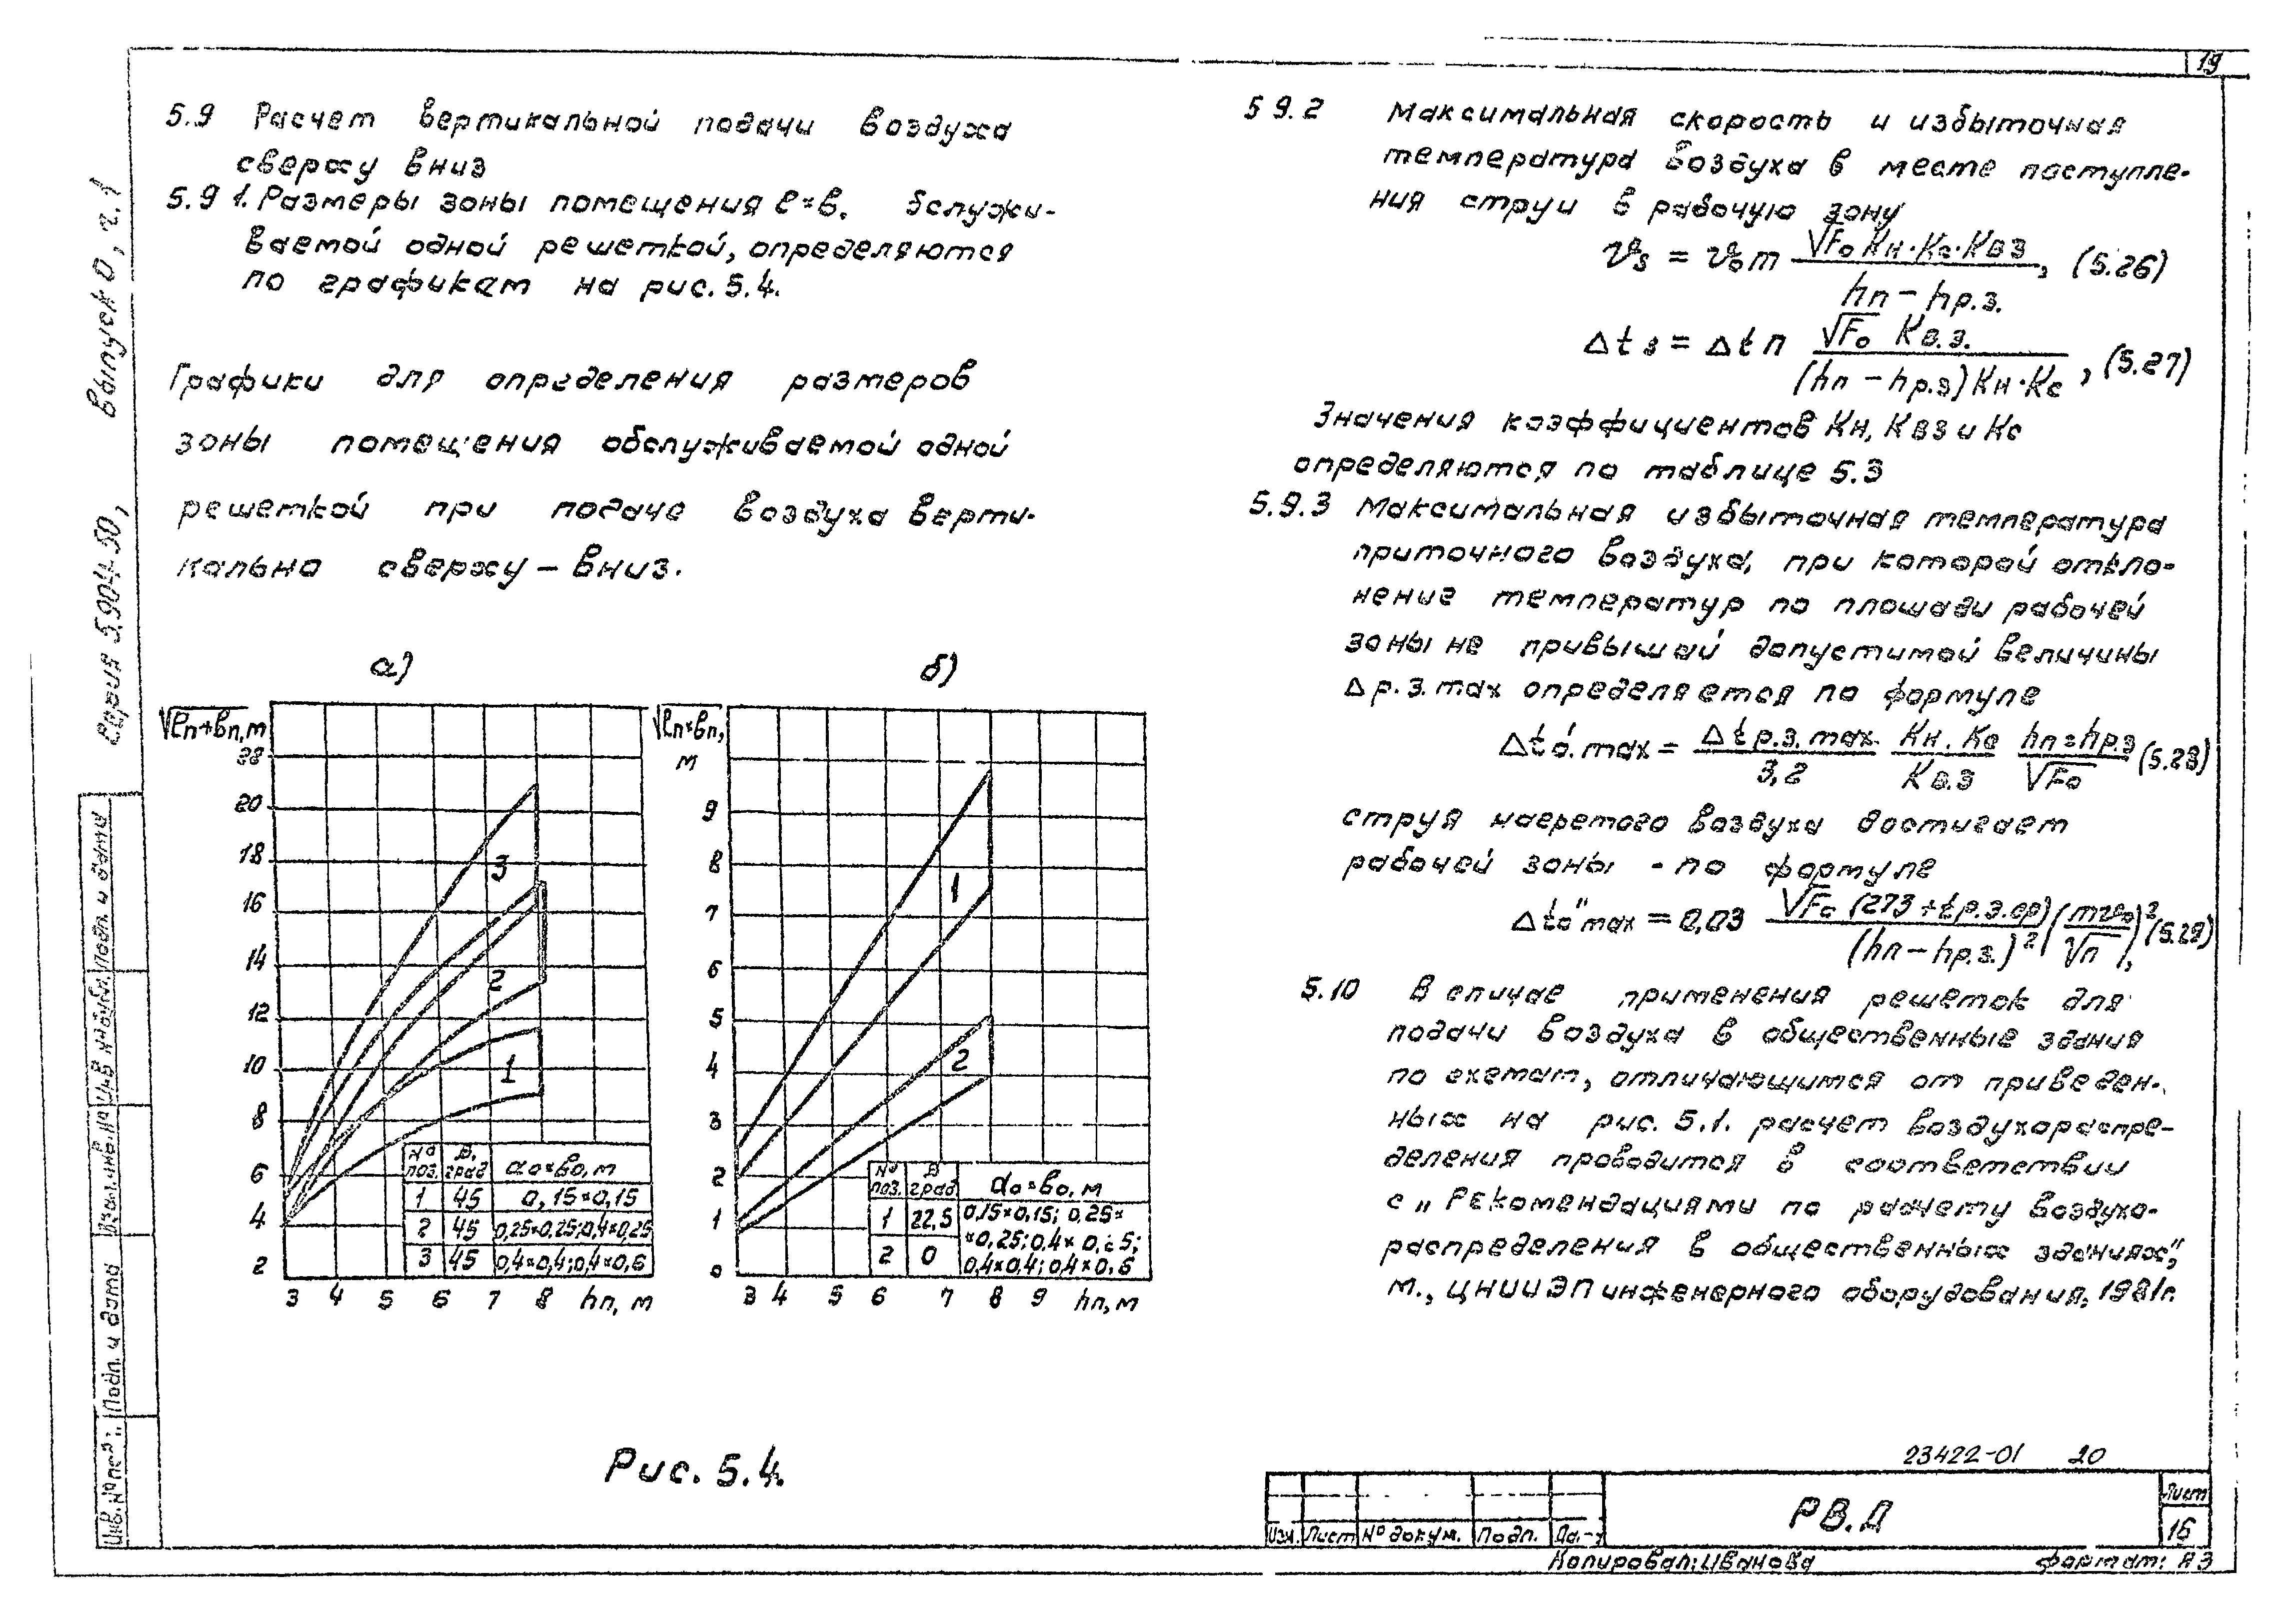 19
5.9 Расчет вертикальной подачи воздуха
сверху вниз
5.9 1. Размеры зоны помещения ℓ×в, бслужи-
ваемой одной решеткой, определяются
по графикам на рис. 5.4.
Графики для определения размеров
зоны помещения обслуживаемой одной
решеткой при подаче воздуха верти-
кально сверху – вниз.
а)
√ℓп+вп, м
28
20
18
16
14
12
10
8
6
4
2
3
2
1
№ поз. β, град а₀×в₀, м
1 45 0,15×0,15
2 45 0,25×0,25; 0,4×0,25
3 45 0,4×0,4; 0,4×0,6
3 4 5 6 7 8 hп, м
б)
√ℓп×вп,
м
9
8
7
6
5
4
3
2
1
0
1
2
№ поз. β град а₀×в₀, м
1 22,5 0,15×0,15; 0,25×
×0,25; 0,4× 0,25;
2 0 0,4×0,4; 0,4×0,6
3 4 5 6 7 8 9 hп, м
Рис. 5.4.
5 9.2 Максимальная скорость и избыточная
температура воздуха в месте поступле-
ния струи в рабочую зону
vз = v₀m √F₀ Кн·Кс·Квз / hп – hр.з. , (5.26)
Δtз = Δt п √F₀ Кв.з. / (hп – hр.з) Кн·Кс , (5.27)
Значения коэффициентов Кн, Квз и Кс
определяются по таблице 5.3
5.9.3 Максимальная избыточная температура
приточного воздуха, при которой откло-
нение температур по площади рабочей
зоны не привышай допустимой величины
Δр.з. max определяется по формуле
Δt₀'. max = Δt р.з. max. / 3,2 Кн. Кс / Кв.з hп = hр.з / √F₀ (5.28)
струя нагретого воздуха достигает
рабочей зоны - по формуле
Δt₀" max = 0,03 √F₀ (273 + tр.з.ср) / (hп – hр.з.)² (mv₀ / √п)², (5.29)
5.10 В случае применения решеток для
подачи воздуха в общественные здания
по схемам, отличающимся от приведен-
ных на рис. 5.1. расчет воздухораспре-
деления проводится в соответствии
с „Рекомендациями по расчету воздухо-
распределения в общественных зданиях",
М., ЦНИИЭП инженерного оборудования, 1981г.
23422-01 20
Изм. Лист № докум. Подп. Да
РВ.Д
Лист
16
Копировал: Иванова
формат: А3
Серия 5.904-50, выпуск 0, ч. 1
Инв. № подл. Подп. и дата Взам. инв. № Инв. № дубл. Подп. и дата